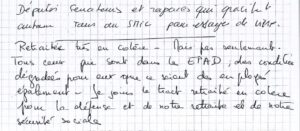 Députés senateurs et rapaces qui gravitent
autour sous un SMIC pour
Retraitée très en colère - Mais pas seulement.
Tous ceux qui sont dans le EPAD, des conditions
dégradées pour eux que ce soient des employés
également - Je joins le tract retraité en colère
pour la défense et de notre retraite et de notre
sécurité sociale